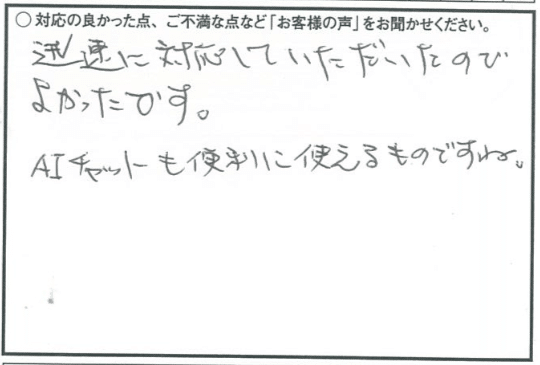 ○ 対応の良かった点、ご不満な点など「お客様の声」をお聞かせください。
迅速に対応していただいたので
よかったです。
AIチャットも便利に使えるものですね。